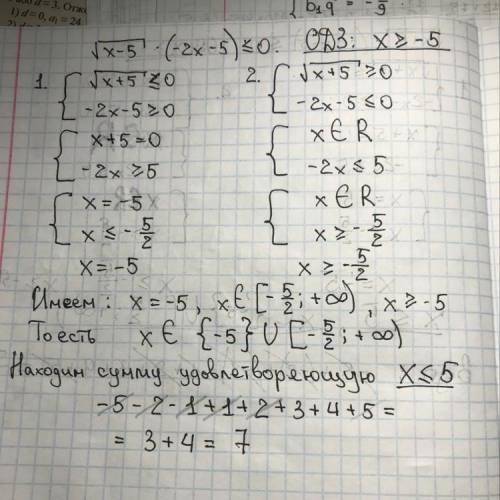 d = 3.
1) d=0, a₁ = 24
b₁q = -5/9
√(x-5) · (-2x-5) ≤ 0. ОДЗ: x ≥ -5
1. { √(x+5) ≤ 0 2. { √(x+5) ≥ 0
-2x-5 ≥ 0 -2x-5 ≤ 0
{ x+5 = 0 { x ∈ R
-2x ≥ 5 -2x ≤ 5
{ x = -5 { x ∈ R
x ≤ -5/2 x ≥ -5/2
x = -5 x ≥ -5/2
Имеем: x = -5, x ∈ [-5/2; +∞), x ≥ -5
То есть x ∈ {-5} ∪ [-5/2; +∞)
Находим сумму удовлетворяющую x ≤ 5
-5-2-1+1+2+3+4+5 =
= 3+4 = 7